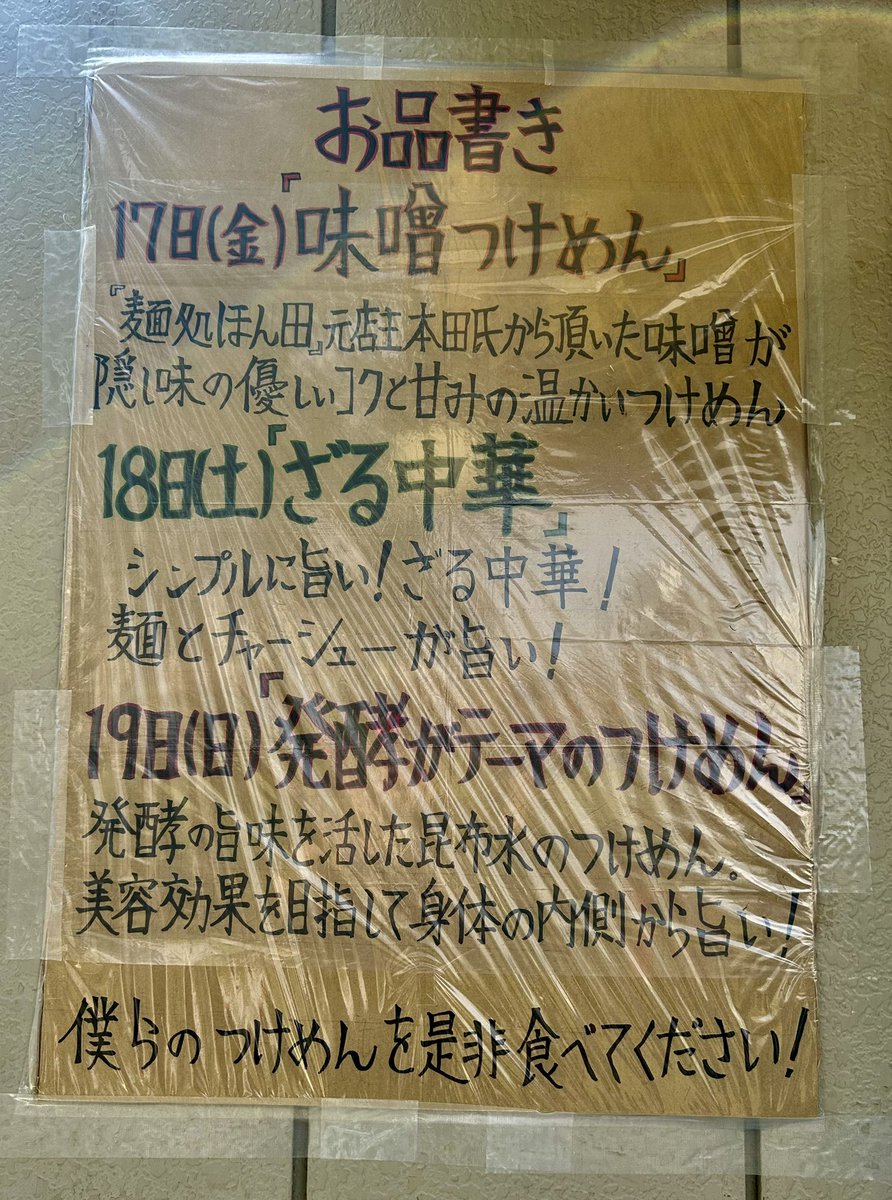 お品書き
17日(金)「味噌つけめん」
『麺処ほん田』元店主本田氏から頂いた味噌が
隠し味の優しいコクと甘みの温かいつけめん
18日(土)「ざる中華」
シンプルに旨い!ざる中華!
麺とチャーシューが旨い!
19日(日)「発酵がテーマのつけめん」
発酵の旨味を活した昆布水のつけめん。
美容効果を目指して身体の内側から旨い!
僕らのつけめんを是非食べてください!